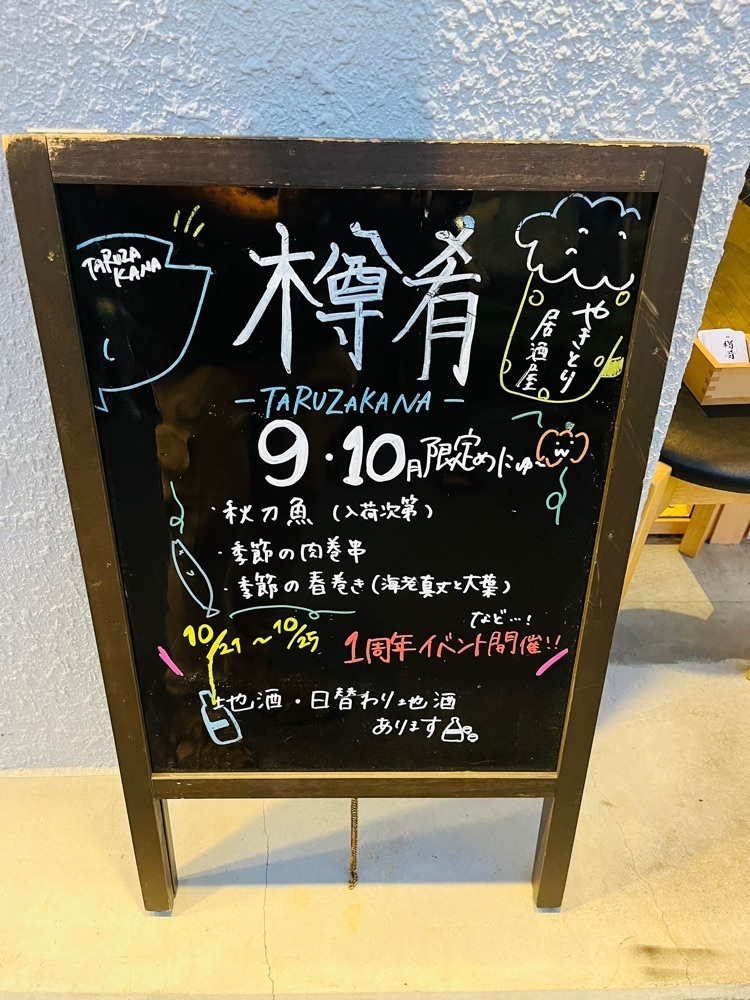 TARUZA
KANA
樽肴
やきとり
居酒屋
-TARUZAKANA-
9・10月限定めにゅ〜
・秋刀魚(入荷次第)
・季節の肉巻串
・季節の春巻き(海老真丈と大葉)
など…!
10/21〜10/25 1周年イベント開催!!
地酒・日替わり地酒
あります
樽肴